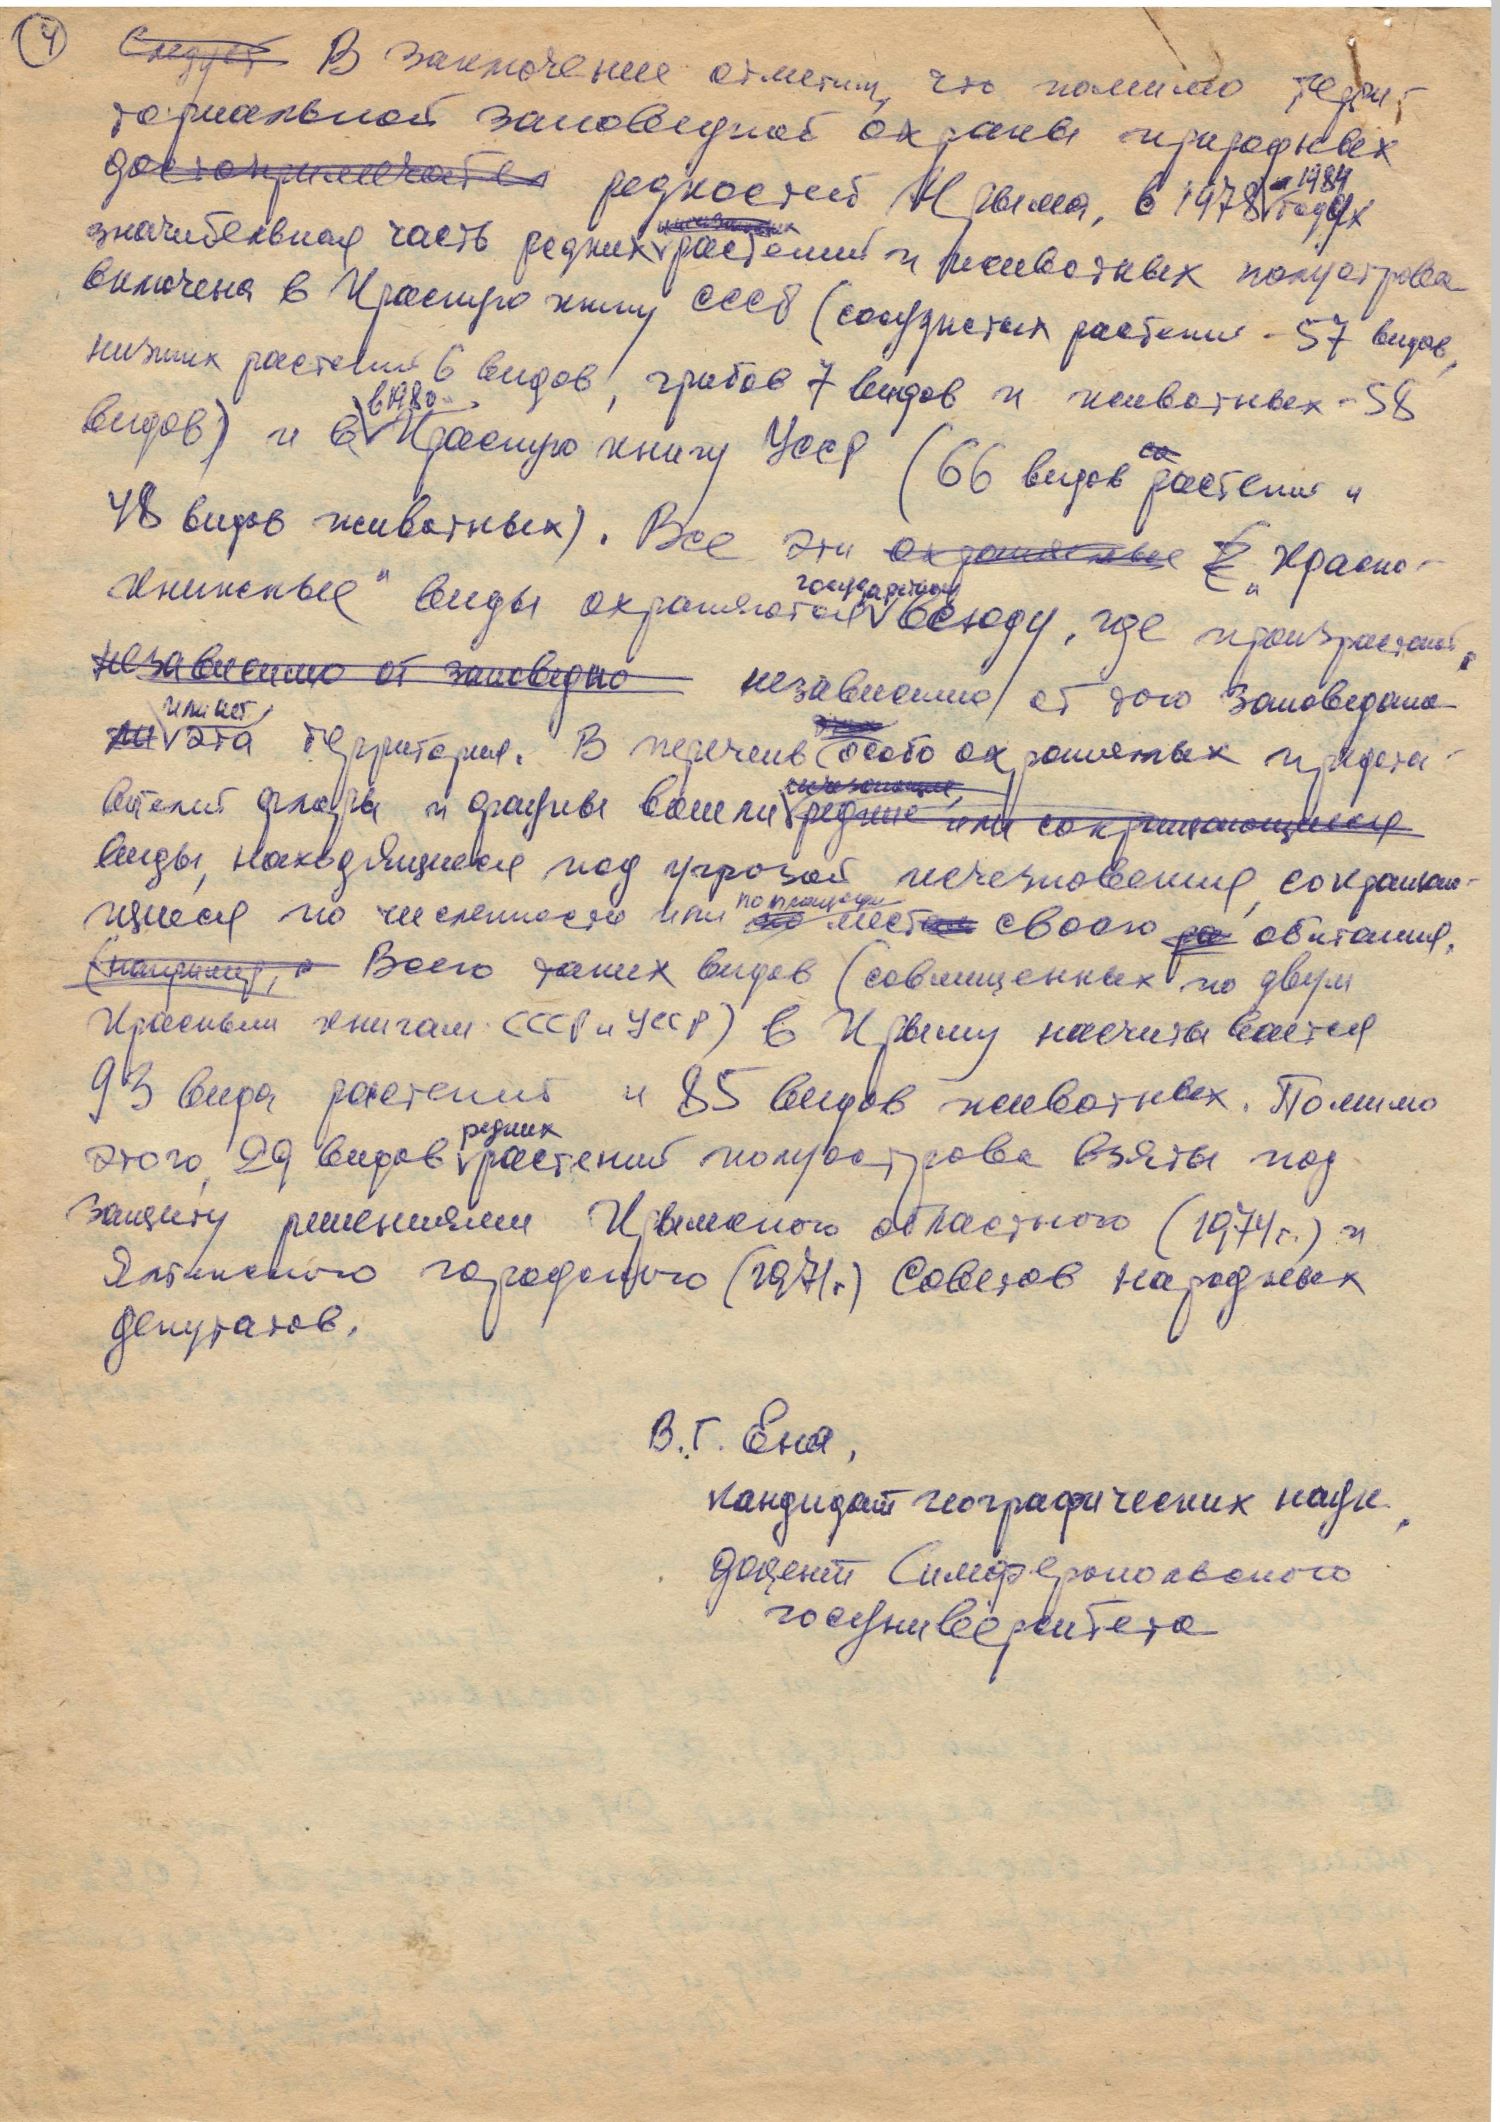 4
Следует В заключение отметим, что помимо терри-
ториальной заповедной охраны природных
достопримечате редкостей Крыма, в 1978 и 1984 годах
значительная часть редких исчезающих растений и животных полуострова
включена в Красную книгу СССР (сосудистых растений - 57 видов,
низших растений 6 видов, грибов 7 видов и животных - 58
видов) и в в 1980 Красную книгу УССР (66 видов со растений и
48 видов животных). Все эти охраняемые "Красно-
книжные" виды охраняются государством всюду, где произрастают,
независимо от заповедно независимо от того заповедана
ли или нет эта территория. В перечень этих особо охраняемых предста-
вителей флоры и фауны вошли исчезающие, редкие или сокращающиеся
виды, находящиеся под угрозой исчезновения, сокращаю-
щиеся по численности или по площади по местам своего ра обитания.
(например, Всего таких видов (совмещенных по двум
Красным книгам СССР и УССР) в Крыму насчитывается
93 вида растений и 85 видов животных. Помимо
этого, 29 видов редких растений полуострова взяты под
защиту решениями Крымского областного (1974 г.) и
Ялтинского городского (1971 г.) Советов народных
депутатов.
В.Г. Ена,
кандидат географических наук,
доцент Симферопольского
госуниверситета